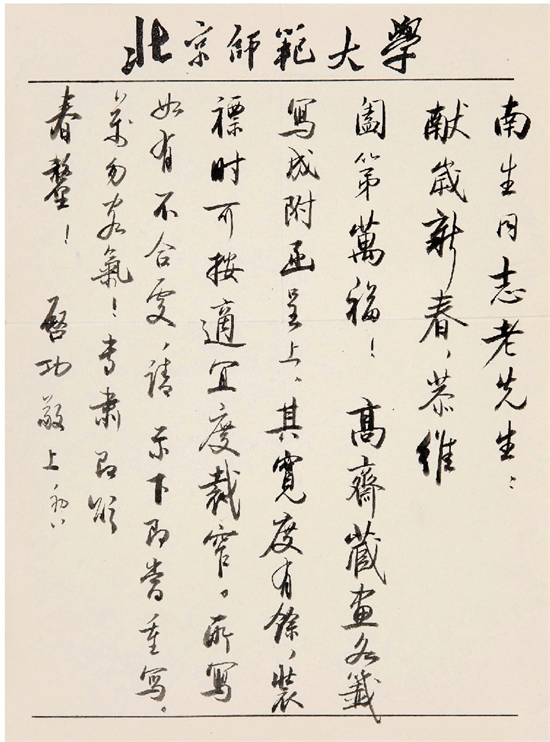 北京師範大學
南生同志老先生：
献歲新春、恭維
阖第萬福！ 高齋藏畫各籤
寫成附函呈上。其寬度有餘，裝
裱时可按適宜度裁窄。所寫
如有不合处、請示下即当重写。
萬勿客氣！专肅即頌
春釐！ 啓功敬上